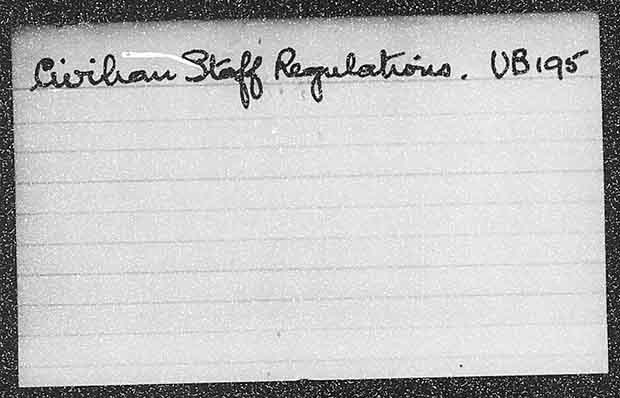 Civilian Staff Regulations. UB195